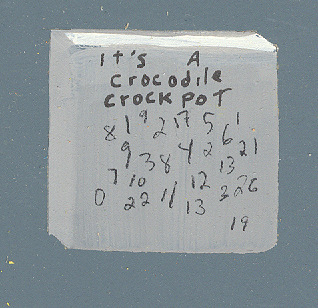 It's A
crocodile
crock pot
8 1 9 2 17 5 6 1
9 3 8 4 2 13 21
7 10 12 3 26
0 22 11 13
19